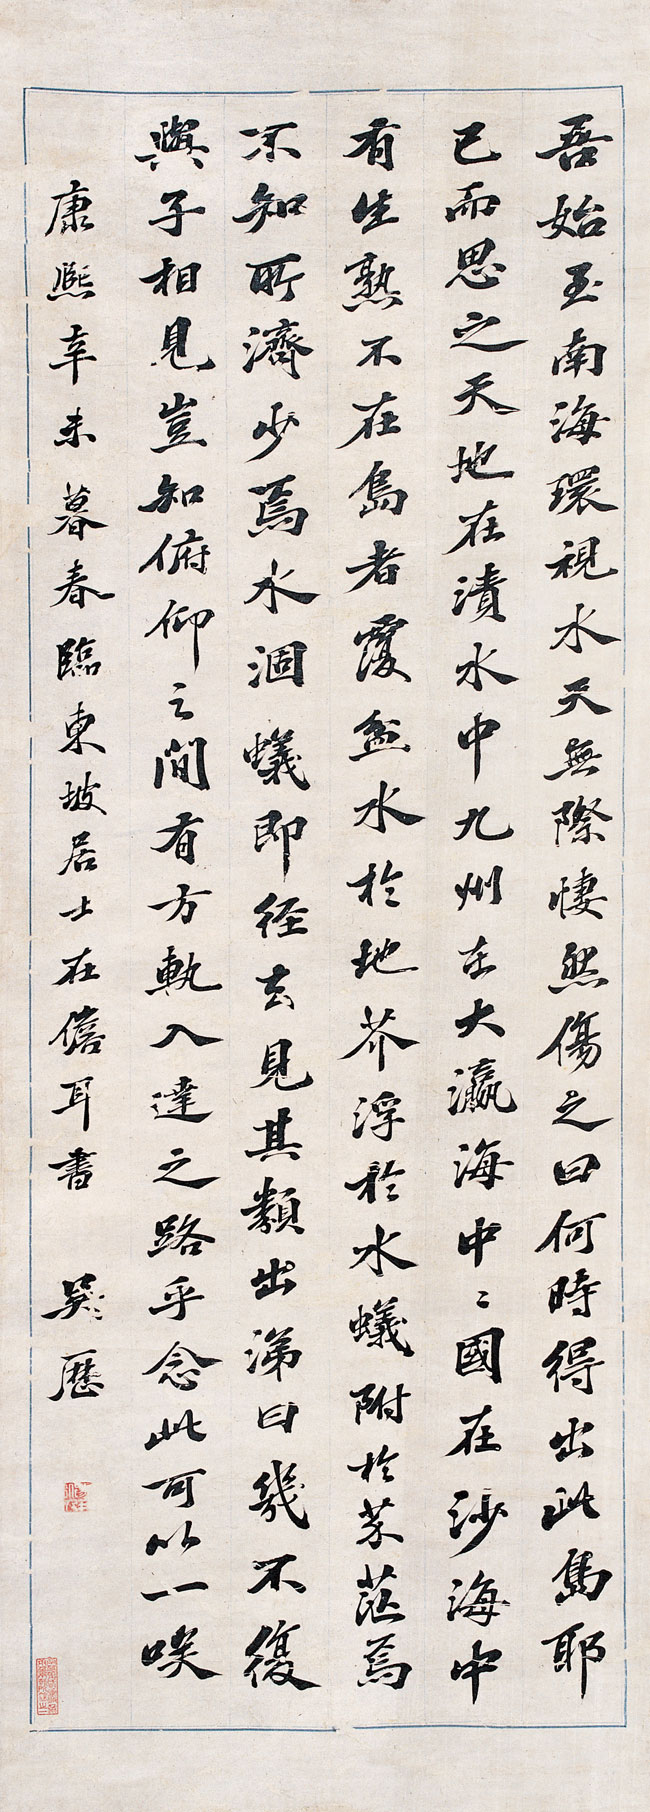 吾始至南海環視水天無際悽然傷之曰何時得出此島耶
已而思之天地在漬水中九州在大瀛海中〻國在沙海中
有生孰不在島者覆盆水於地芥浮於水蟻附於芥茫焉
不知所濟少焉水涸蟻即徑去見其類出涕曰幾不復
與子相見豈知俯仰之間有方軌八達之路乎念此可以一咲
康熙辛未暮春臨東坡居士在儋耳書
吳歷